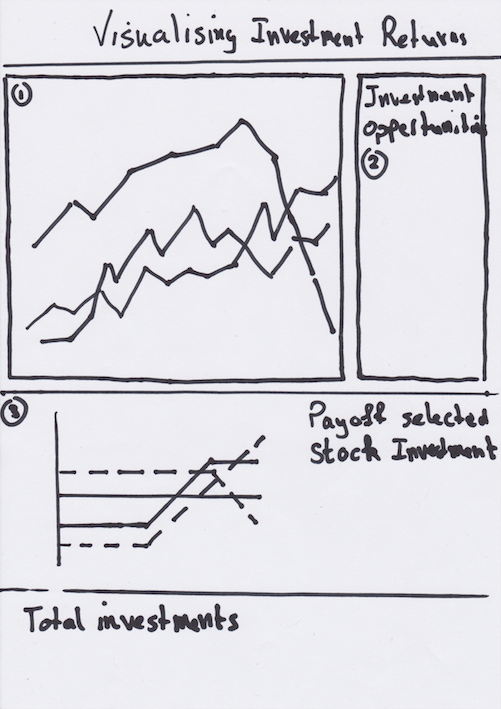 Visualising Investment Returns
1
Investment
opportunities
2
3
Payoff selected
Stock Investment
Total investments